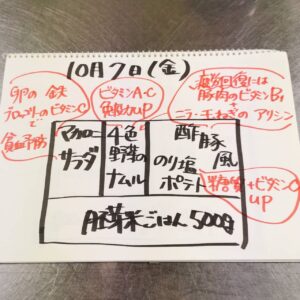 10月7日(金)
卵の 鉄
ブロッコリーのビタミンC
で
貧血予防
ビタミンA・C
免疫力UP
疲労回復には
豚肉のビタミンB1
+
ニラ・玉ねぎの アリシン
マカロニー
サラダ
4色
野菜の
ナムル
酢豚
風
のり塩
ポテト
糖質+ビタミンC
UP
胚芽米ごはん 500g